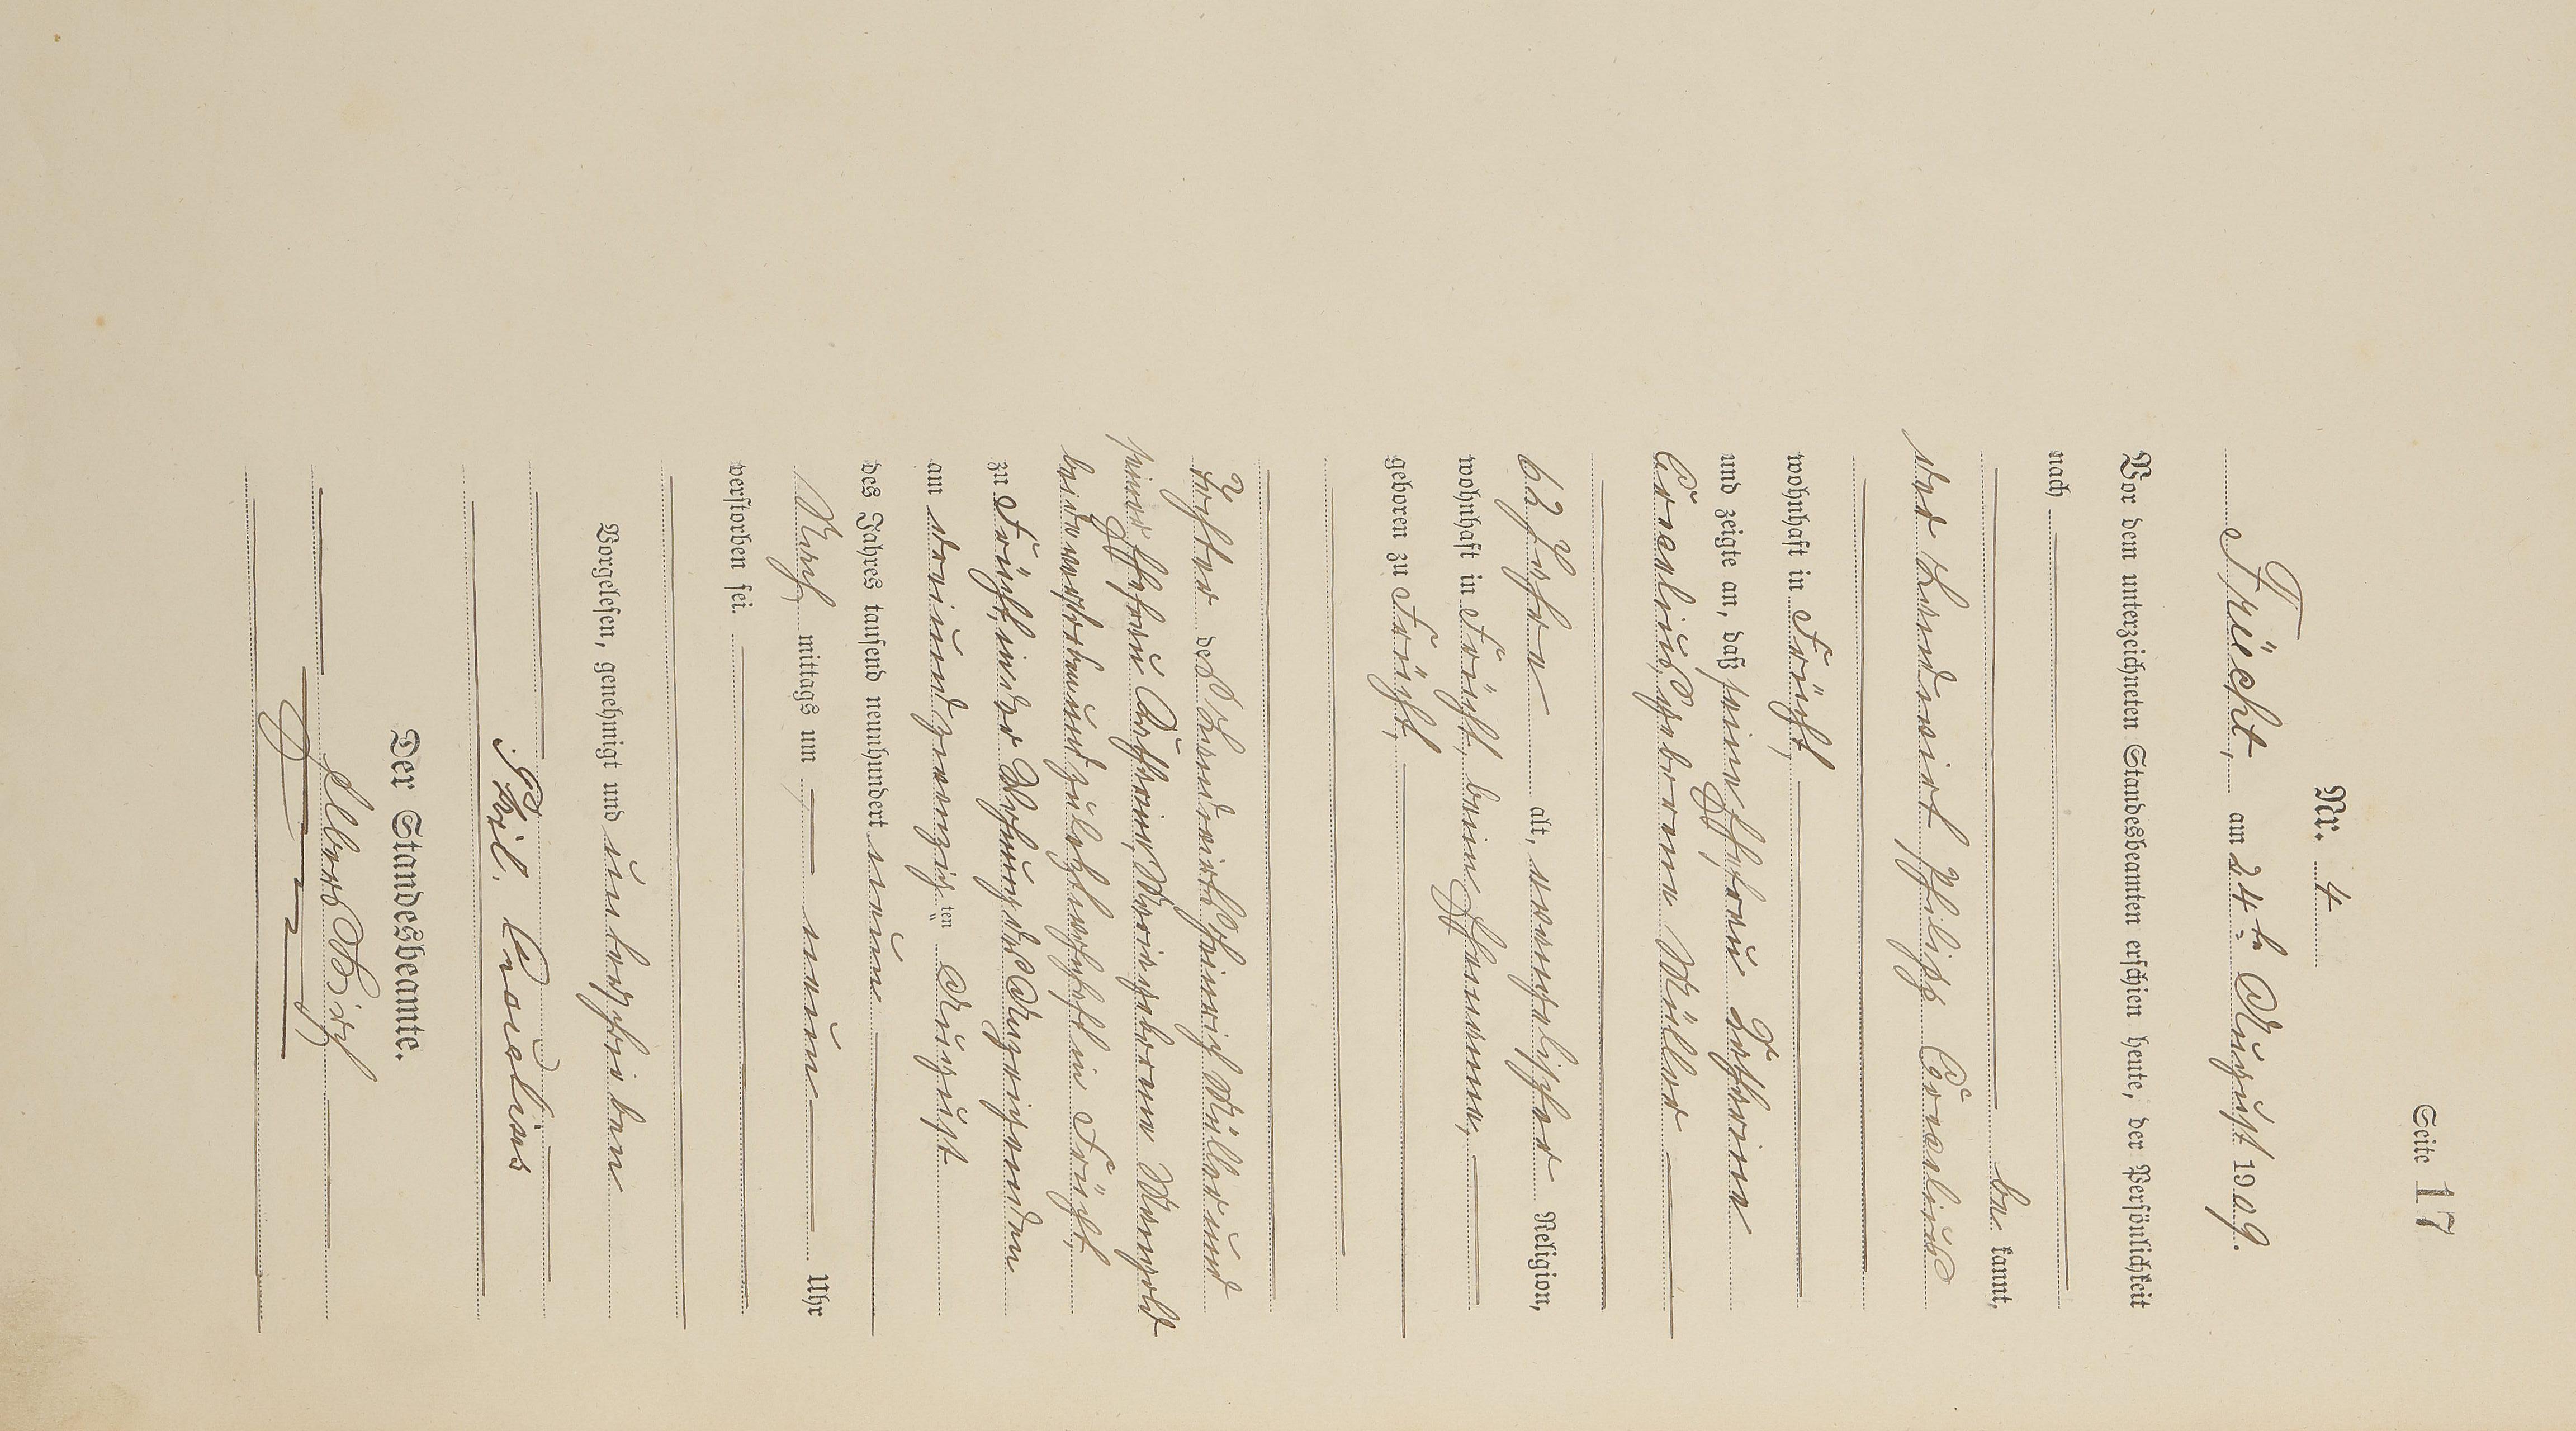 Seite 17
Nr. 4
Frücht, am 24ten August 1909.
Vor dem unterzeichneten Standesbeamten erschien heute, der Persönlichkeit
nach
be kannt,
der Landwirt Philipp Corcelius
wohnhaft in Frücht,
und zeigte an, daß seine Ehefrau
Corcelius, geborene Müller
62 Jahre alt, evangelischer Religion,
wohnhaft in Frücht, beim Ehemanne,
geboren zu Frücht,
Tochter des Landwirts Heinrich Müller und
seiner Ehefrau Marie geborene
beide verstorben und zuletzt wohnhaft in Frücht,
zu Frücht, in der Wohnung des Anzeigenden
am dreiundzwanzigten August
des Jahres tausend neunhundert neun
Nach mittags um neun Uhr
verstorben sei.
Vorgelesen, genehmigt und unterschrieben
Phil. Corcelius
Der Standesbeamte.